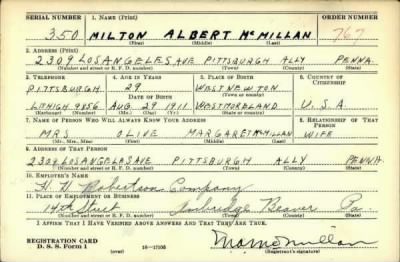 SERIAL NUMBER 1. NAME (Print) ORDER NUMBER
350 MILTON ALBERT McMILLAN 767
(First) (Middle) (Last)
2. ADDRESS (Print)
2309 LOS ANGELES AVE PITTSBURGH ALLY PENNA.
(Number and street or R. F. D. number) (Town) (County) (State)
3. TELEPHONE 4. AGE IN YEARS 5. PLACE OF BIRTH 6. COUNTRY OF CITIZENSHIP
PITTSBURGH. 29 WEST NEWTON
DATE OF BIRTH (Town or county)
LEHIGH 9856 AUG 29 1911 WESTMORELAND U. S. A.
(Exchange) (Number) (Mo.) (Day) (Yr.) (State or country)
7. NAME OF PERSON WHO WILL ALWAYS KNOW YOUR ADDRESS 8. RELATIONSHIP OF THAT PERSON
MRS OLIVE MARGARET McMILLAN WIFE
(Mr., Mrs., Miss) (First) (Middle) (Last)
9. ADDRESS OF THAT PERSON
2309 LOS ANGELAS AVE PITTSBURGH ALLY PENNA
(Number and street or R. F. D. number) (Town) (County) (State)
10. EMPLOYER'S NAME
H. H. Robertson Company
11. PLACE OF EMPLOYMENT OR BUSINESS
14th Street Ambridge Beaver Pa.
(Number and street or R. F. D. number) (Town) (County) (State)
I AFFIRM THAT I HAVE VERIFIED ABOVE ANSWERS AND THAT THEY ARE TRUE.
REGISTRATION CARD
D. S. S. Form 1 (over) 16—17105 (Registrant's signature)